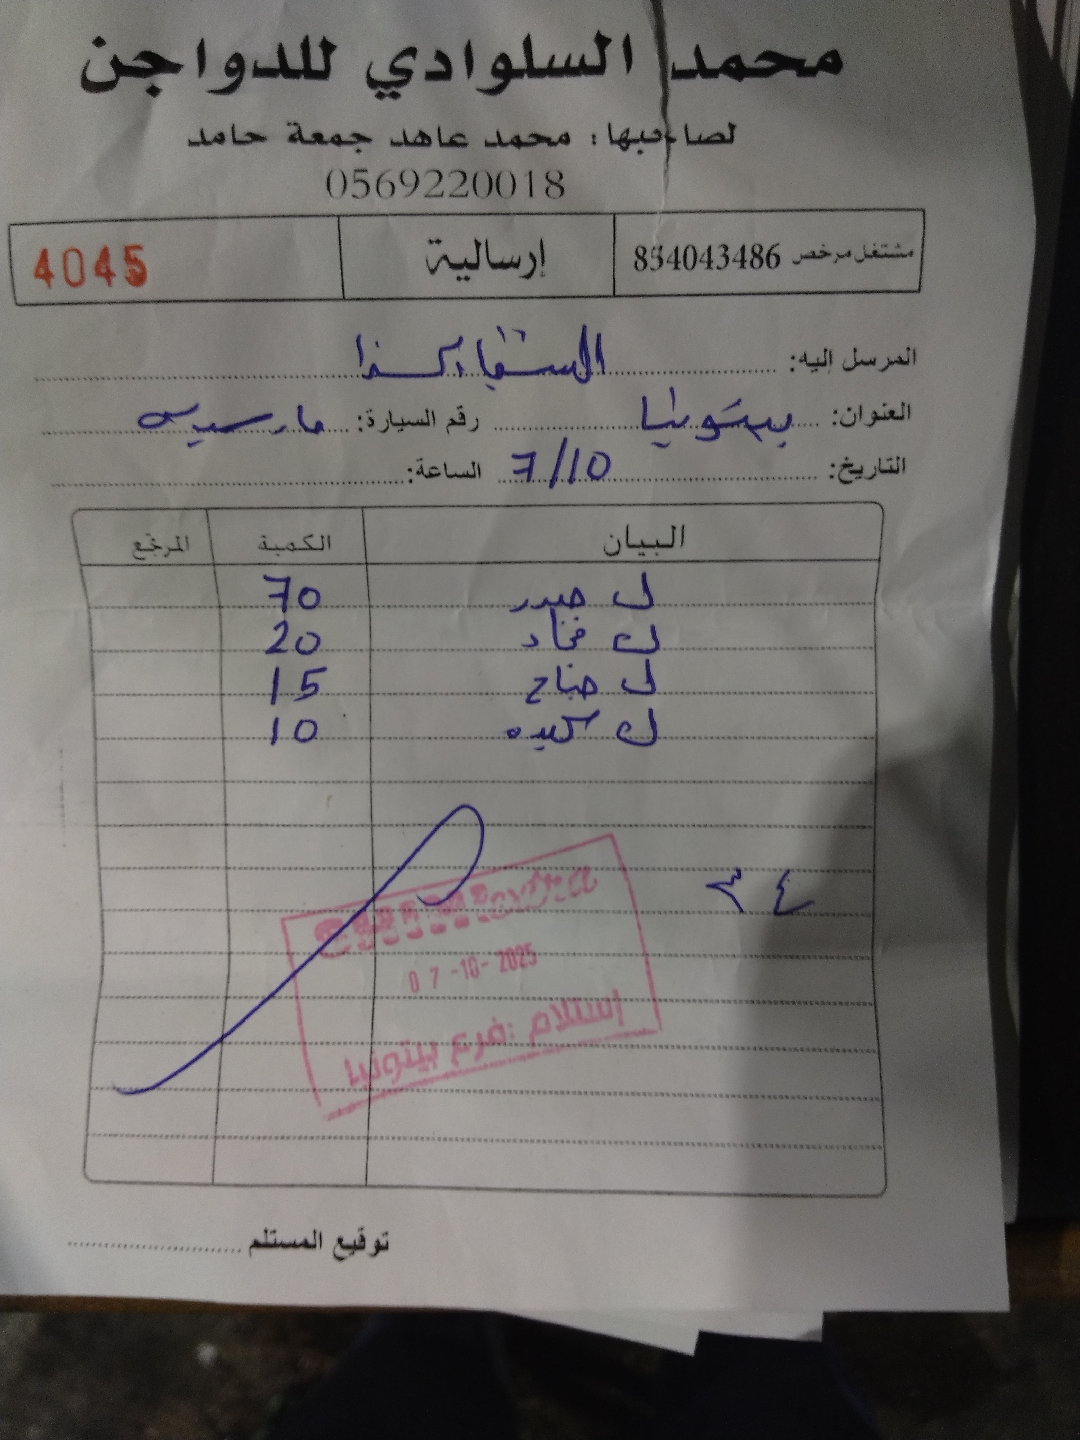 محمد السلوادي للدواجن
لصاحبها: محمد عاهد جمعة حامد
0569220018
مشتغل مرخص 854043486
إرسالية
4045
المرسل إليه:
العنوان: بيتونيا رقم السيارة: مارسيدس
التاريخ: 7/10 الساعة:
البيان الكمية المرتجع
ك صدر 70
ك فخاد 20
ك جناح 15
ك كبده 10
٣٤
07-10-2025
إستلام :فرع بيتونيا
توقيع المستلم